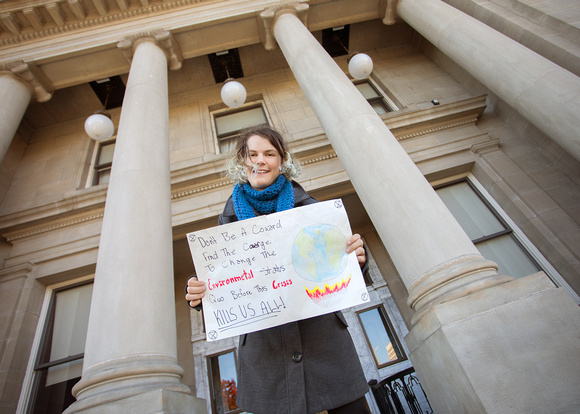 Don't Be A Coward
Find The Courge
To Change The
Environmental Status
Quo Before This Crises
KILLS US ALL!